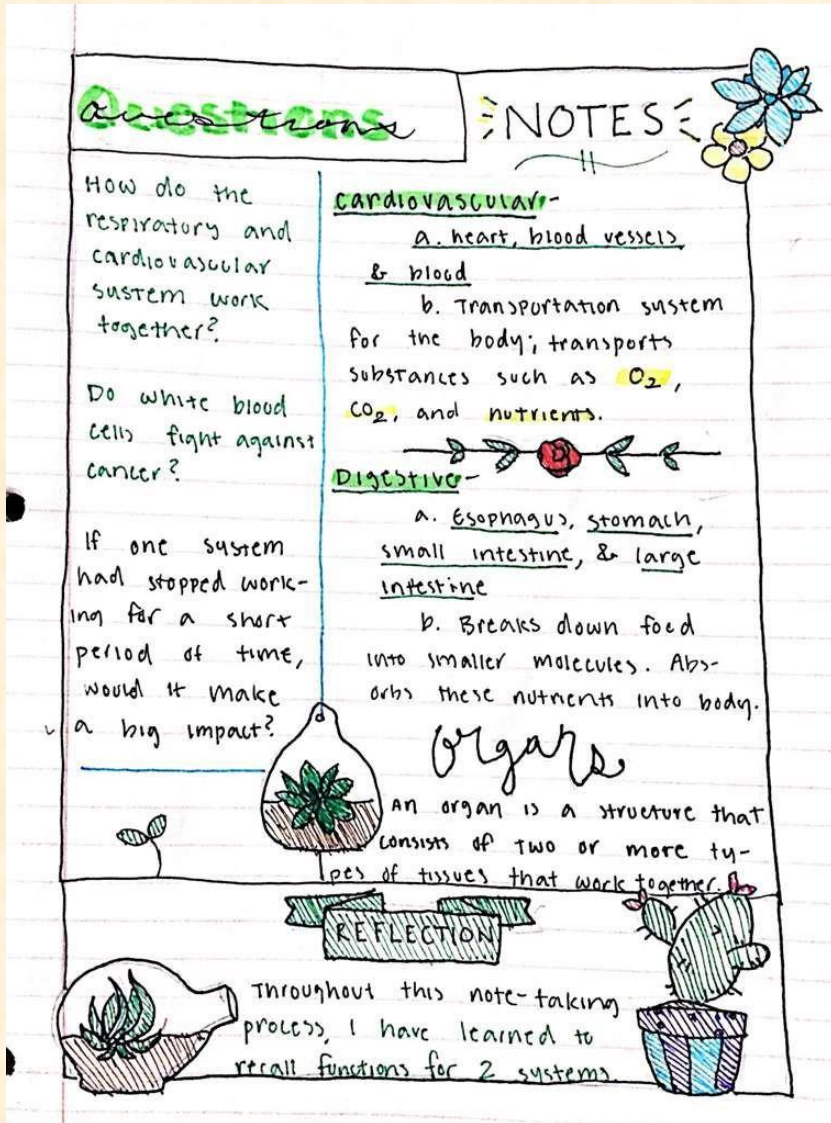 Questions
NOTES
How do the
respiratory and
cardiovascular
system work
together?
Do white blood
cells fight against
cancer?
If one system
had stopped work-
ing for a short
period of time,
would it make
a big impact?
cardiovascular-
a. heart, blood vessels
& blood
b. Transportation system
for the body; transports
substances such as O₂,
CO₂, and nutrients.
Digestive-
a. Esophagus, stomach,
small intestine, & large
intestine
b. Breaks down food
into smaller molecules. Abs-
orbs these nutrients into body.
organs
An organ is a structure that
consists of two or more ty-
pes of tissues that work together.
REFLECTION
Throughout this note-taking
process, I have learned to
recall functions for 2 systems.